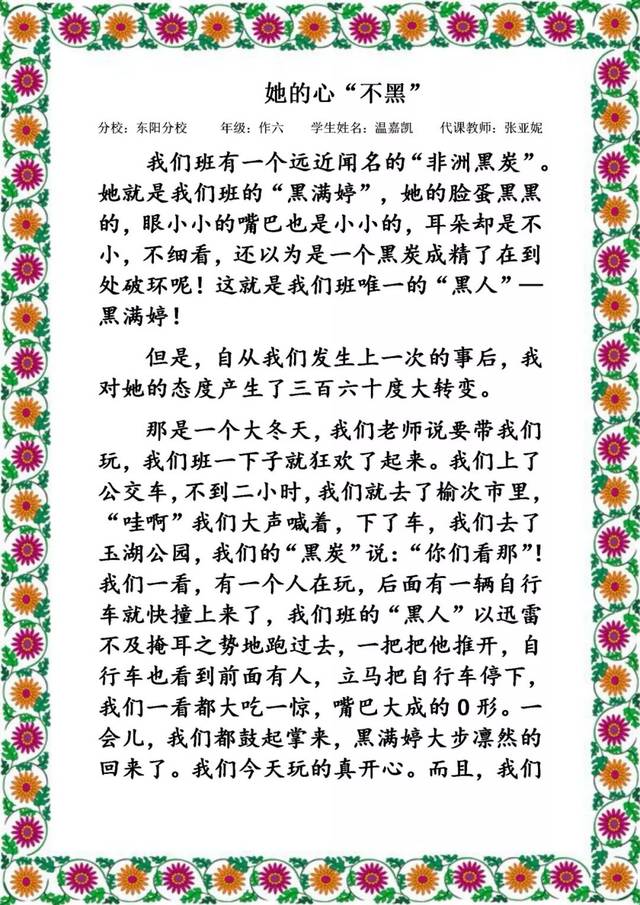 她的心“不黑”
分校：东阳分校 年级：作六 学生姓名：温嘉凯 代课教师：张亚妮
我们班有一个远近闻名的“非洲黑炭”。
她就是我们班的“黑满婷”，她的脸蛋黑黑
的，眼小小的嘴巴也是小小的，耳朵却是不
小，不细看，还以为是一个黑炭成精了在到
处破环呢！这就是我们班唯一的“黑人”—
黑满婷！
但是，自从我们发生上一次的事后，我
对她的态度产生了三百六十度大转变。
那是一个大冬天，我们老师说要带我们
玩，我们班一下子就狂欢了起来。我们上了
公交车，不到二小时，我们就去了榆次市里，
“哇啊”我们大声喊着，下了车，我们去了
玉湖公园，我们的“黑炭”说：“你们看那”！
我们一看，有一个人在玩，后面有一辆自行
车就快撞上来了，我们班的“黑人”以迅雷
不及掩耳之势地跑过去，一把把他推开，自
行车也看到前面有人，立马把自行车停下，
我们一看都大吃一惊，嘴巴大成的0形。一
会儿，我们都鼓起掌来，黑满婷大步凛然的
回来了。我们今天玩的真开心。而且，我们